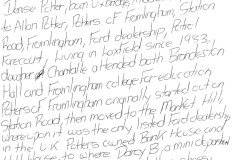 Denise Potter, born Uxbridge,
to Allan Potter, Potters of Framlingham, Station
Road, Framlingham, Ford dealership, Petrol
Forecourt, Living in Laxfield since 1993,
daughter Chantelle attended both Brandeston
Hall and Framlingham college for education
Potters of Framlingham originally started out on
Station Road, then moved to the Market Hill,
whereupon it was the only listed Ford dealership
in the U.K Potters owned Bank House and
to where Darcy B, a mini department